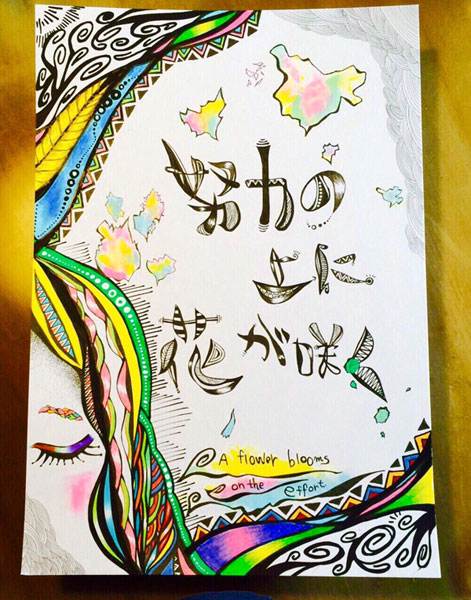 努力の
上に
花が咲く
A flower blooms
on the effort